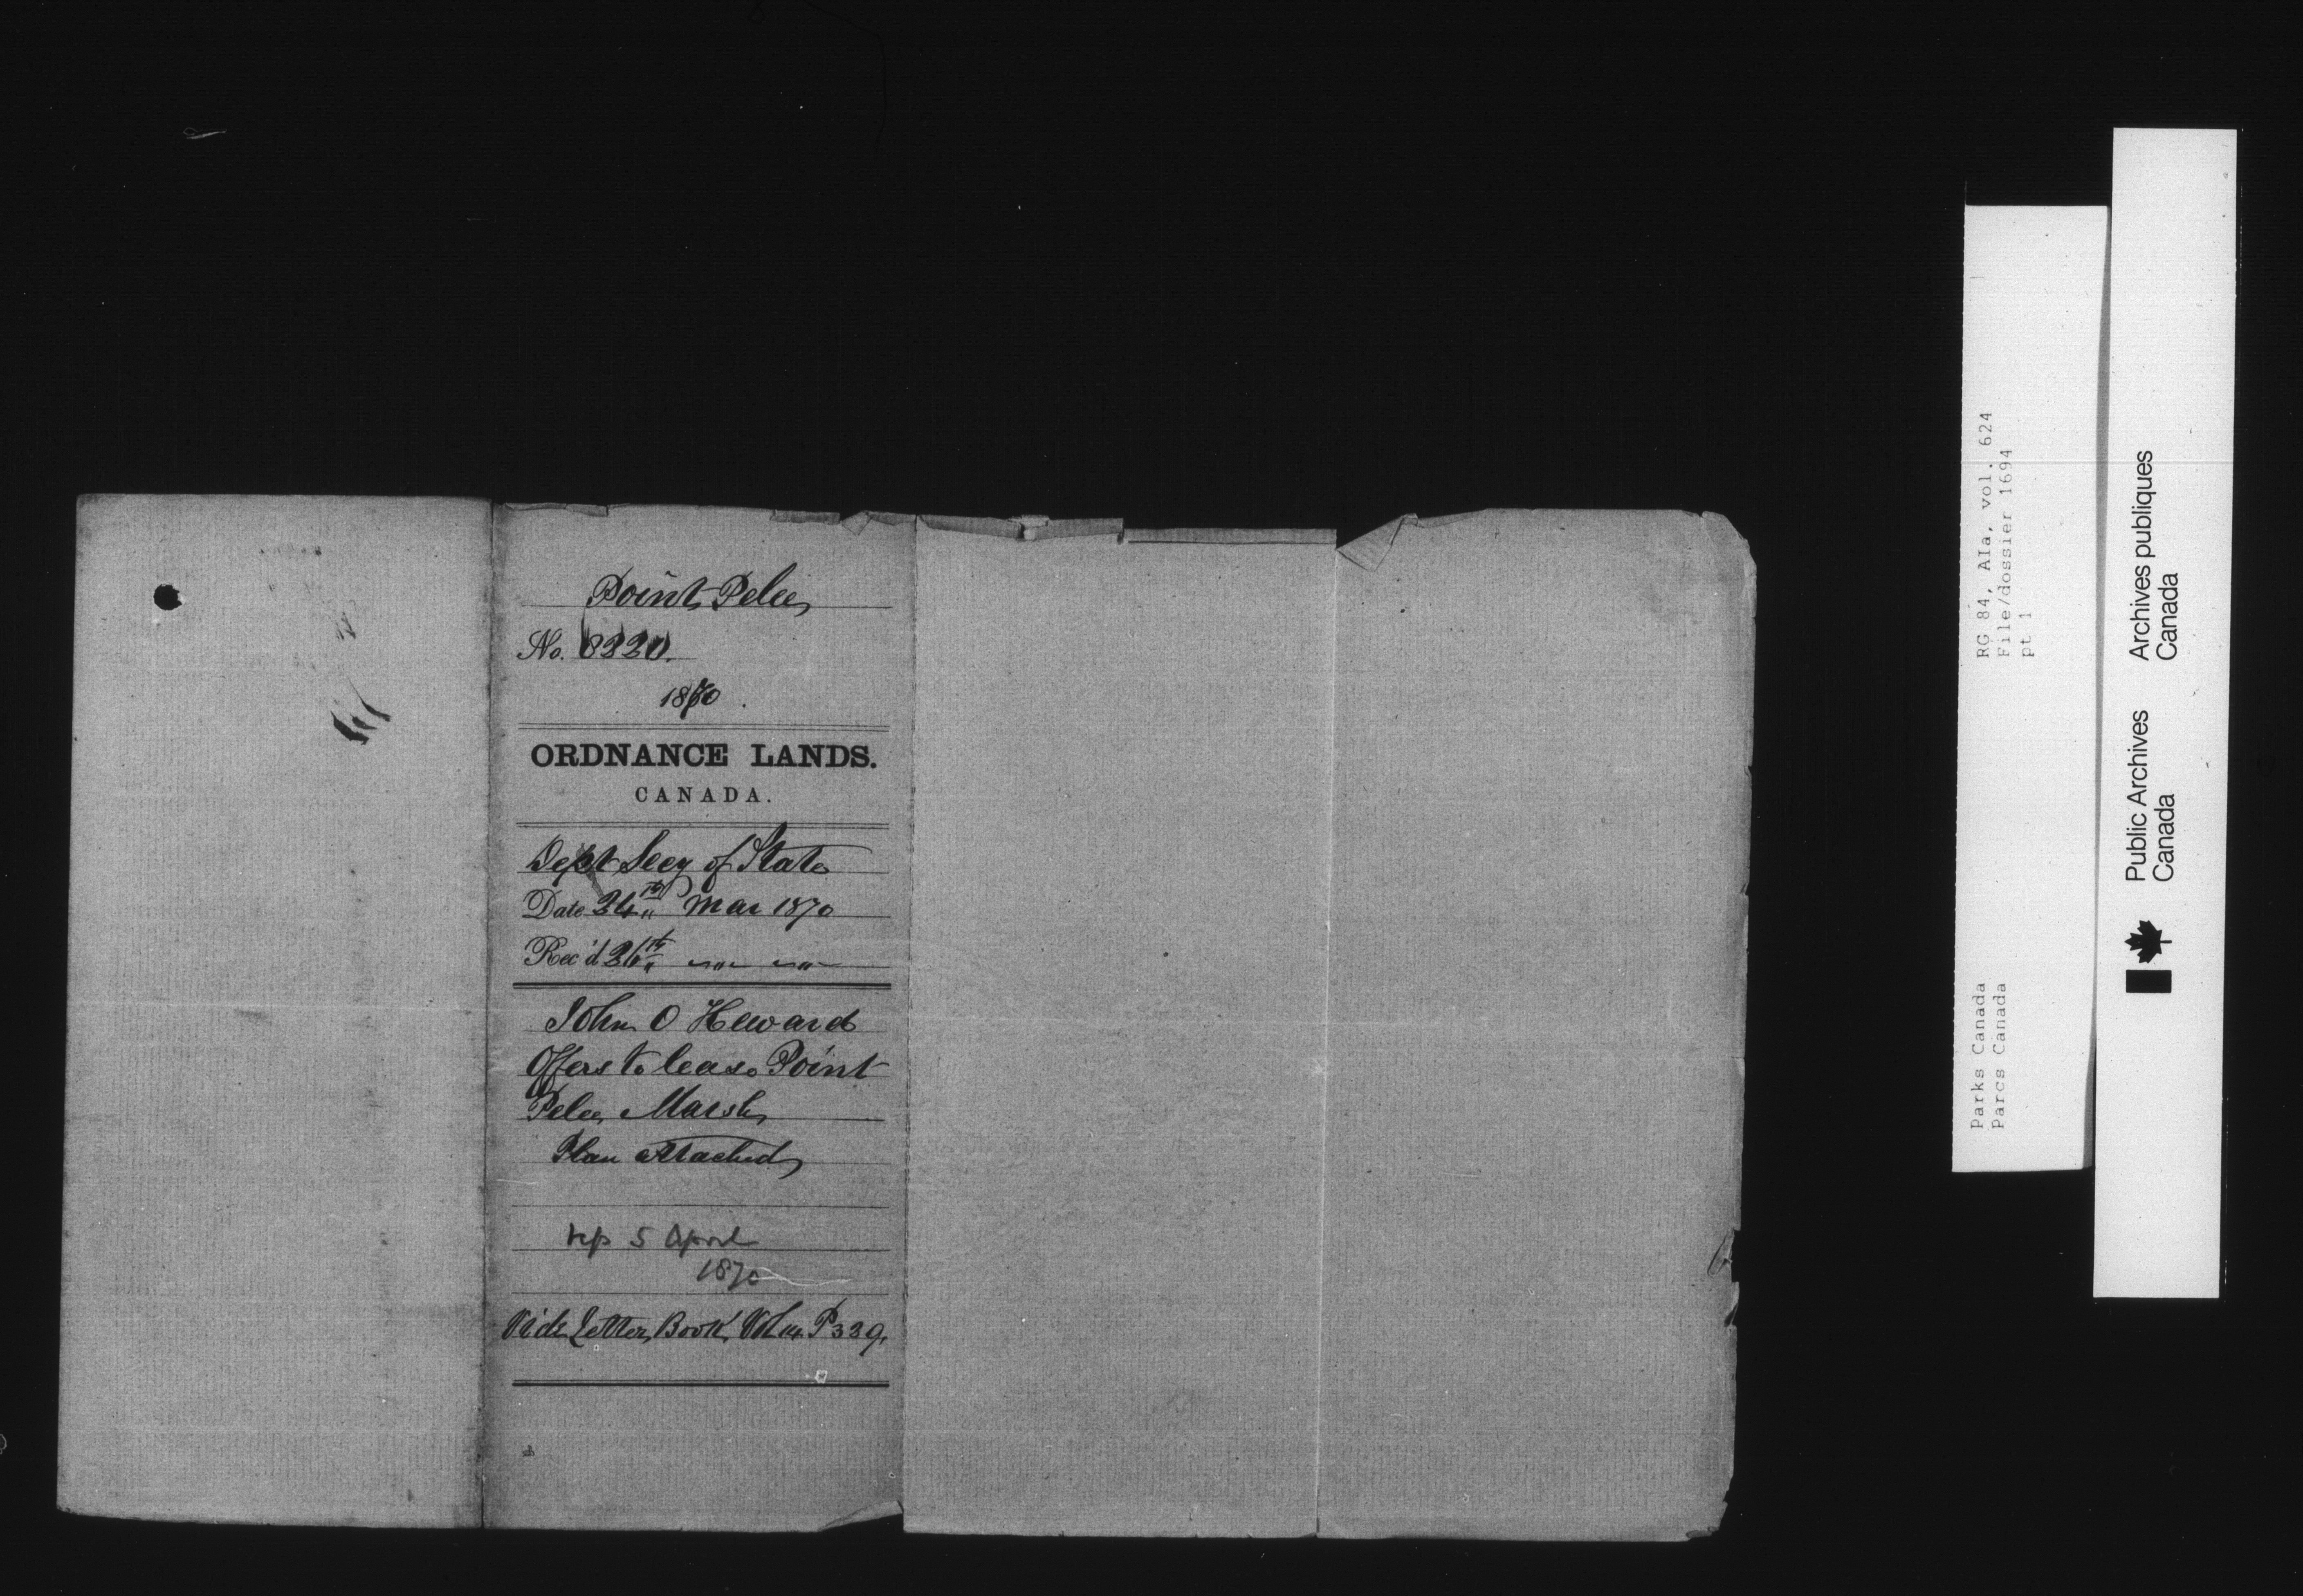 Point Pelee
No. 8220.
1870.
ORDNANCE LANDS.
CANADA.
Dept Secy of State
Date 24th Mar 1870
Rec'd 26th " "
John O Heward
Offers to lease Point
Pelee Marsh
Plan attached
rep 5 April
1870
Vide Letter Book, Vol P 339,
RG 84, AIa, vol. 624
File/dossier 1694
pt 1
Parks Canada
Parcs Canada
Public Archives
Canada
Archives publiques
Canada